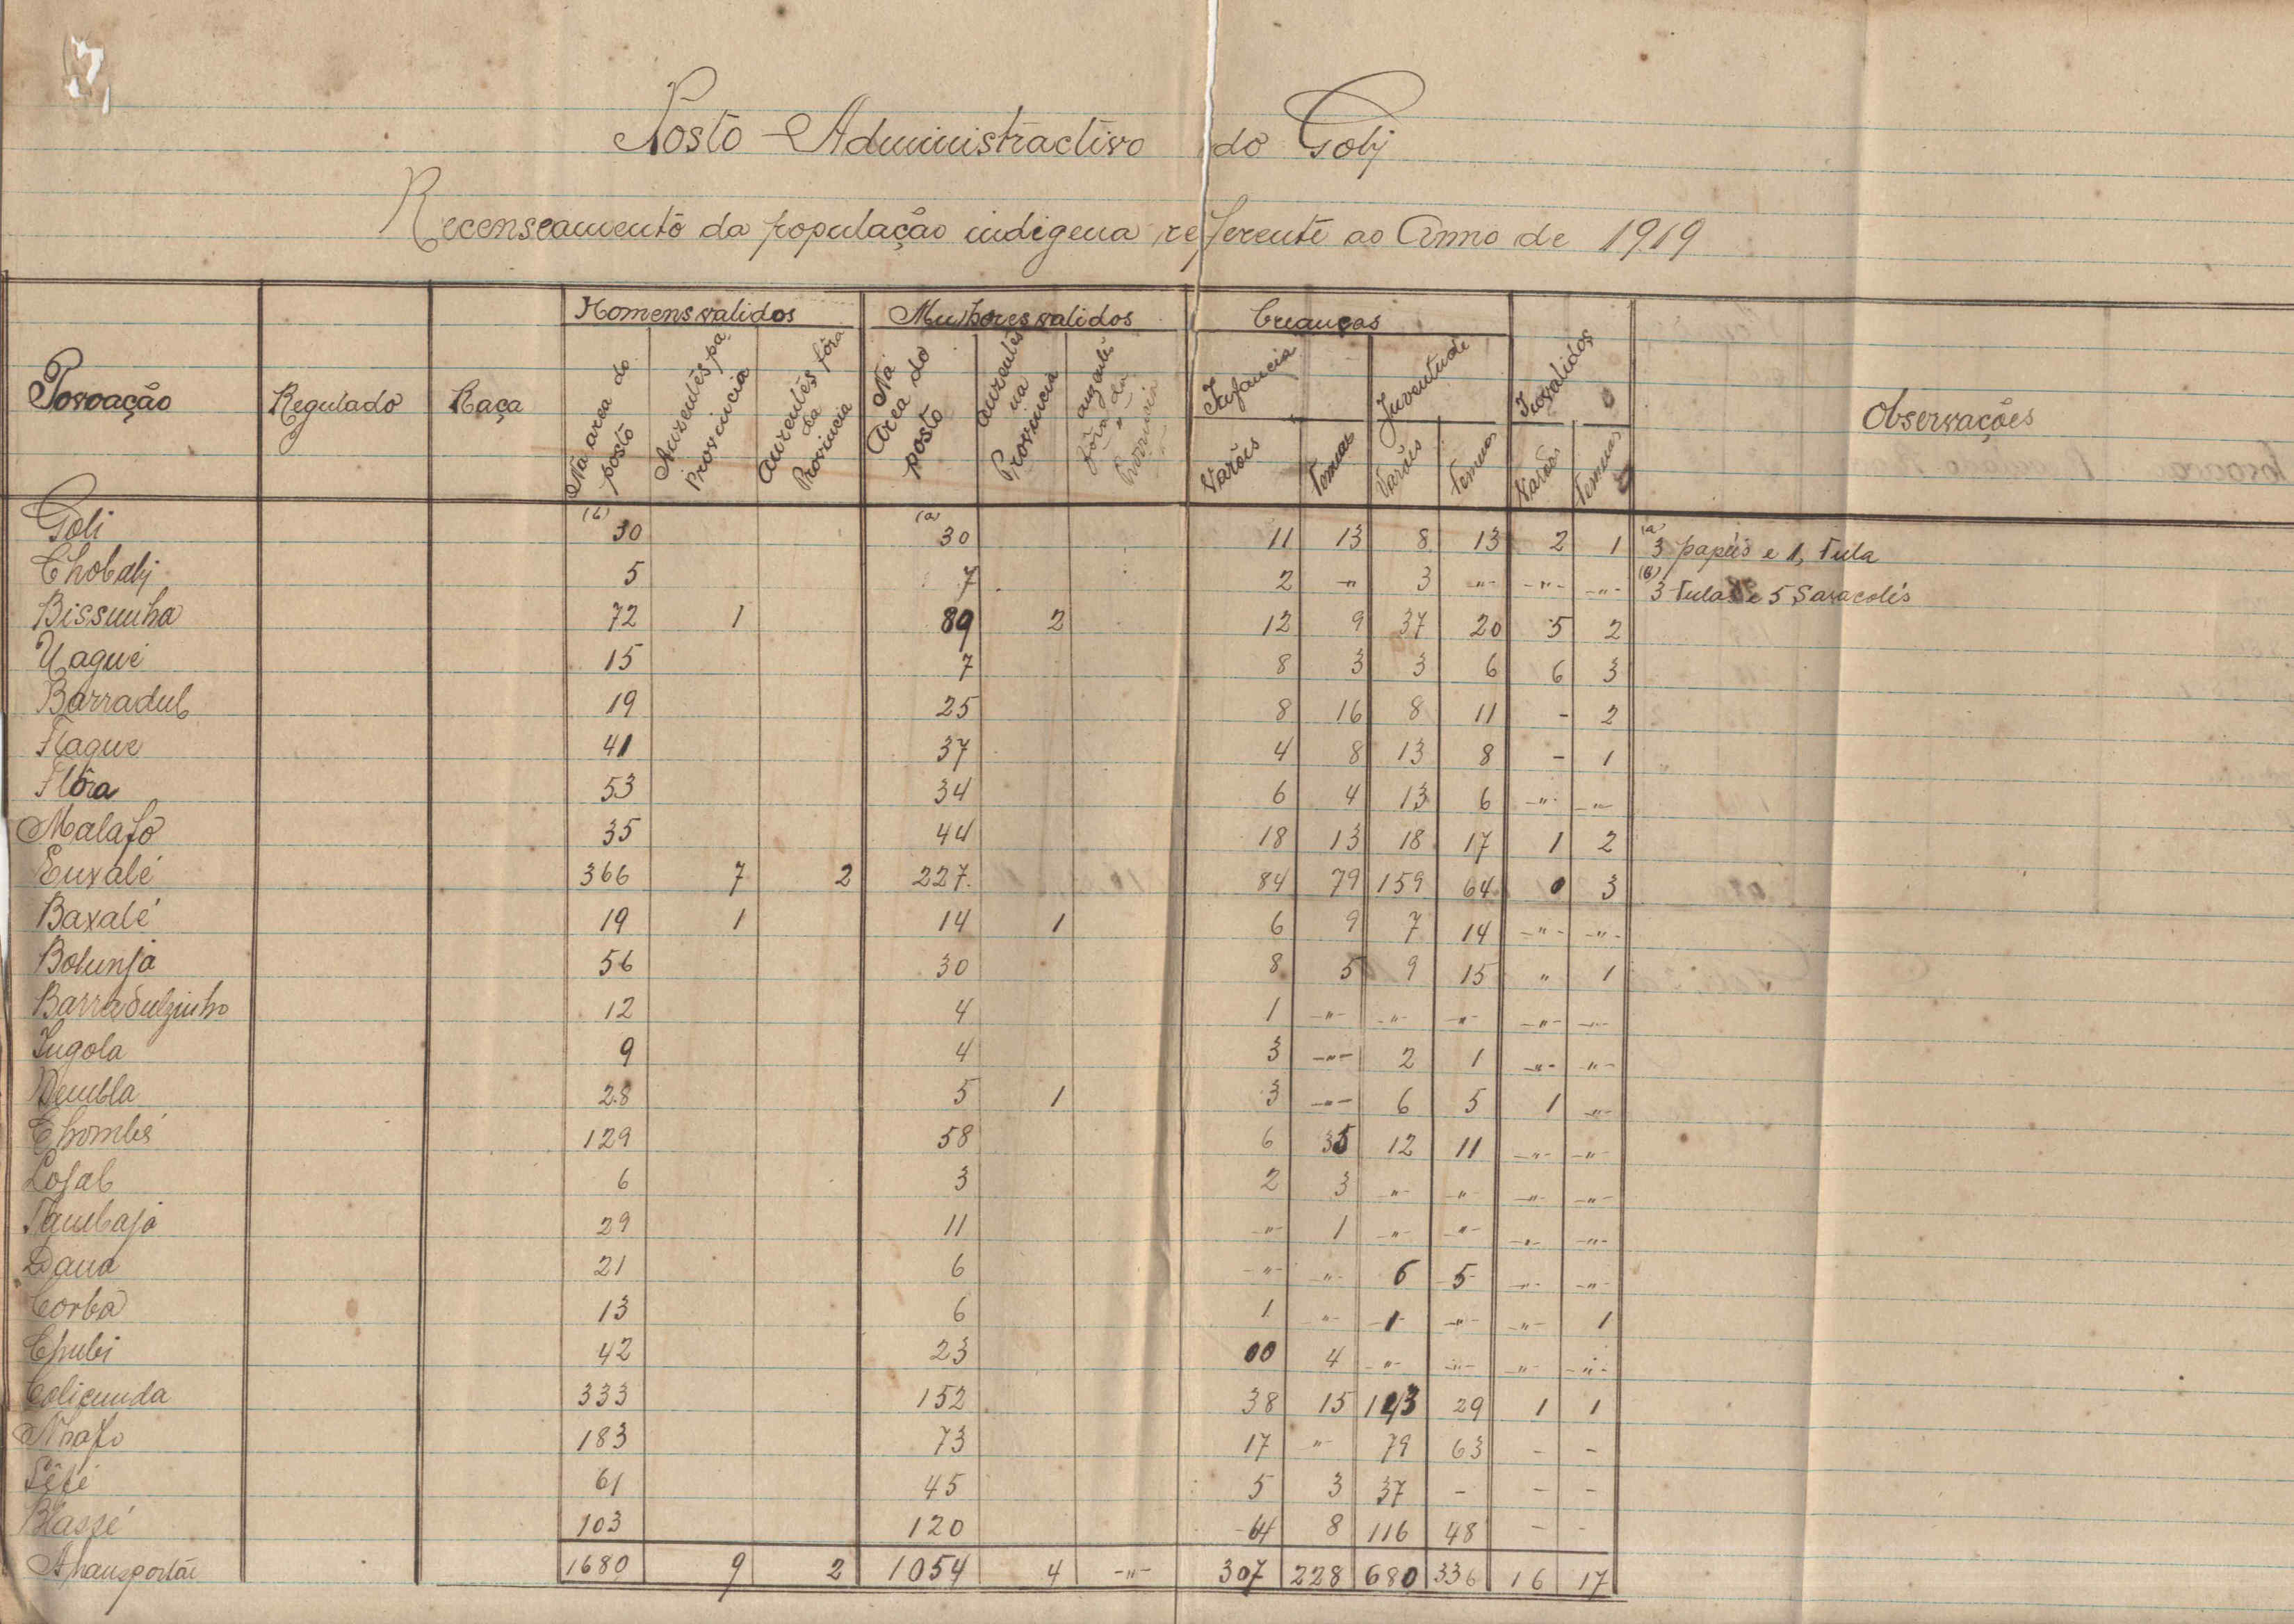 Posto Administractivo do Golij
Recenseamento da população indigena referente ao Anno de 1919
Povoação Regulado Raça Homens validos Mulheres validos Crianças Invalidos Observações
Infancia Juventude
Na area do posto Auzentes pª Provincia auzentes fóra da Provincia Na Area do posto auzentes na Provincia auzentes fóra da Provincia Varões Femeas Varões Femeas Varões Femeas
Goli (b) 30 (a) 30 11 13 8 13 2 1 (a) 3 papeis e 1, Fula
Chobalij 5 7 2 -"- 3 -"- -"- -"- (b) 3 Fulas e 5 Saracolés
Bissunha 72 1 89 2 12 9 37 20 5 2
Uagué 15 7 8 3 3 6 6 3
Barradul 19 25 8 16 8 11 - 2
Flaque 41 37 4 8 13 8 - 1
Flôra 53 34 6 4 13 6 -"- -"-
Malafo 35 44 18 13 18 17 1 2
Enxalé 366 7 2 227 84 79 159 64 0 3
Baxalé 19 1 14 1 6 9 7 14 -"- -"-
Bolunja 56 30 8 5 9 15 " 1
Barradulzinho 12 4 1 -"- -"- -"- -"- -"-
Ingola 9 4 3 -"- 2 1 -"- -"-
Dembla 28 5 1 3 -"- 6 5 1 -"-
Chombé 129 58 6 35 12 11 -"- -"-
Lofal 6 3 2 3 -"- -"- -"- -"-
Tambajá 29 11 -"- 1 -"- -"- -"- -"-
Dana 21 6 -"- -"- 6 5 -"- -"-
Corbá 13 6 1 -"- 1 -"- -"- 1
Chubi 42 23 00 4 -"- -"- -"- -"-
Colicunda 333 152 38 15 143 29 1 1
Nhafo 183 73 17 -"- 79 63 - -
Fêfé 61 45 5 3 37 - - -
Blassé 103 120 64 8 116 48 - -
A transportar 1680 9 2 1054 4 -"- 307 228 680 336 16 17